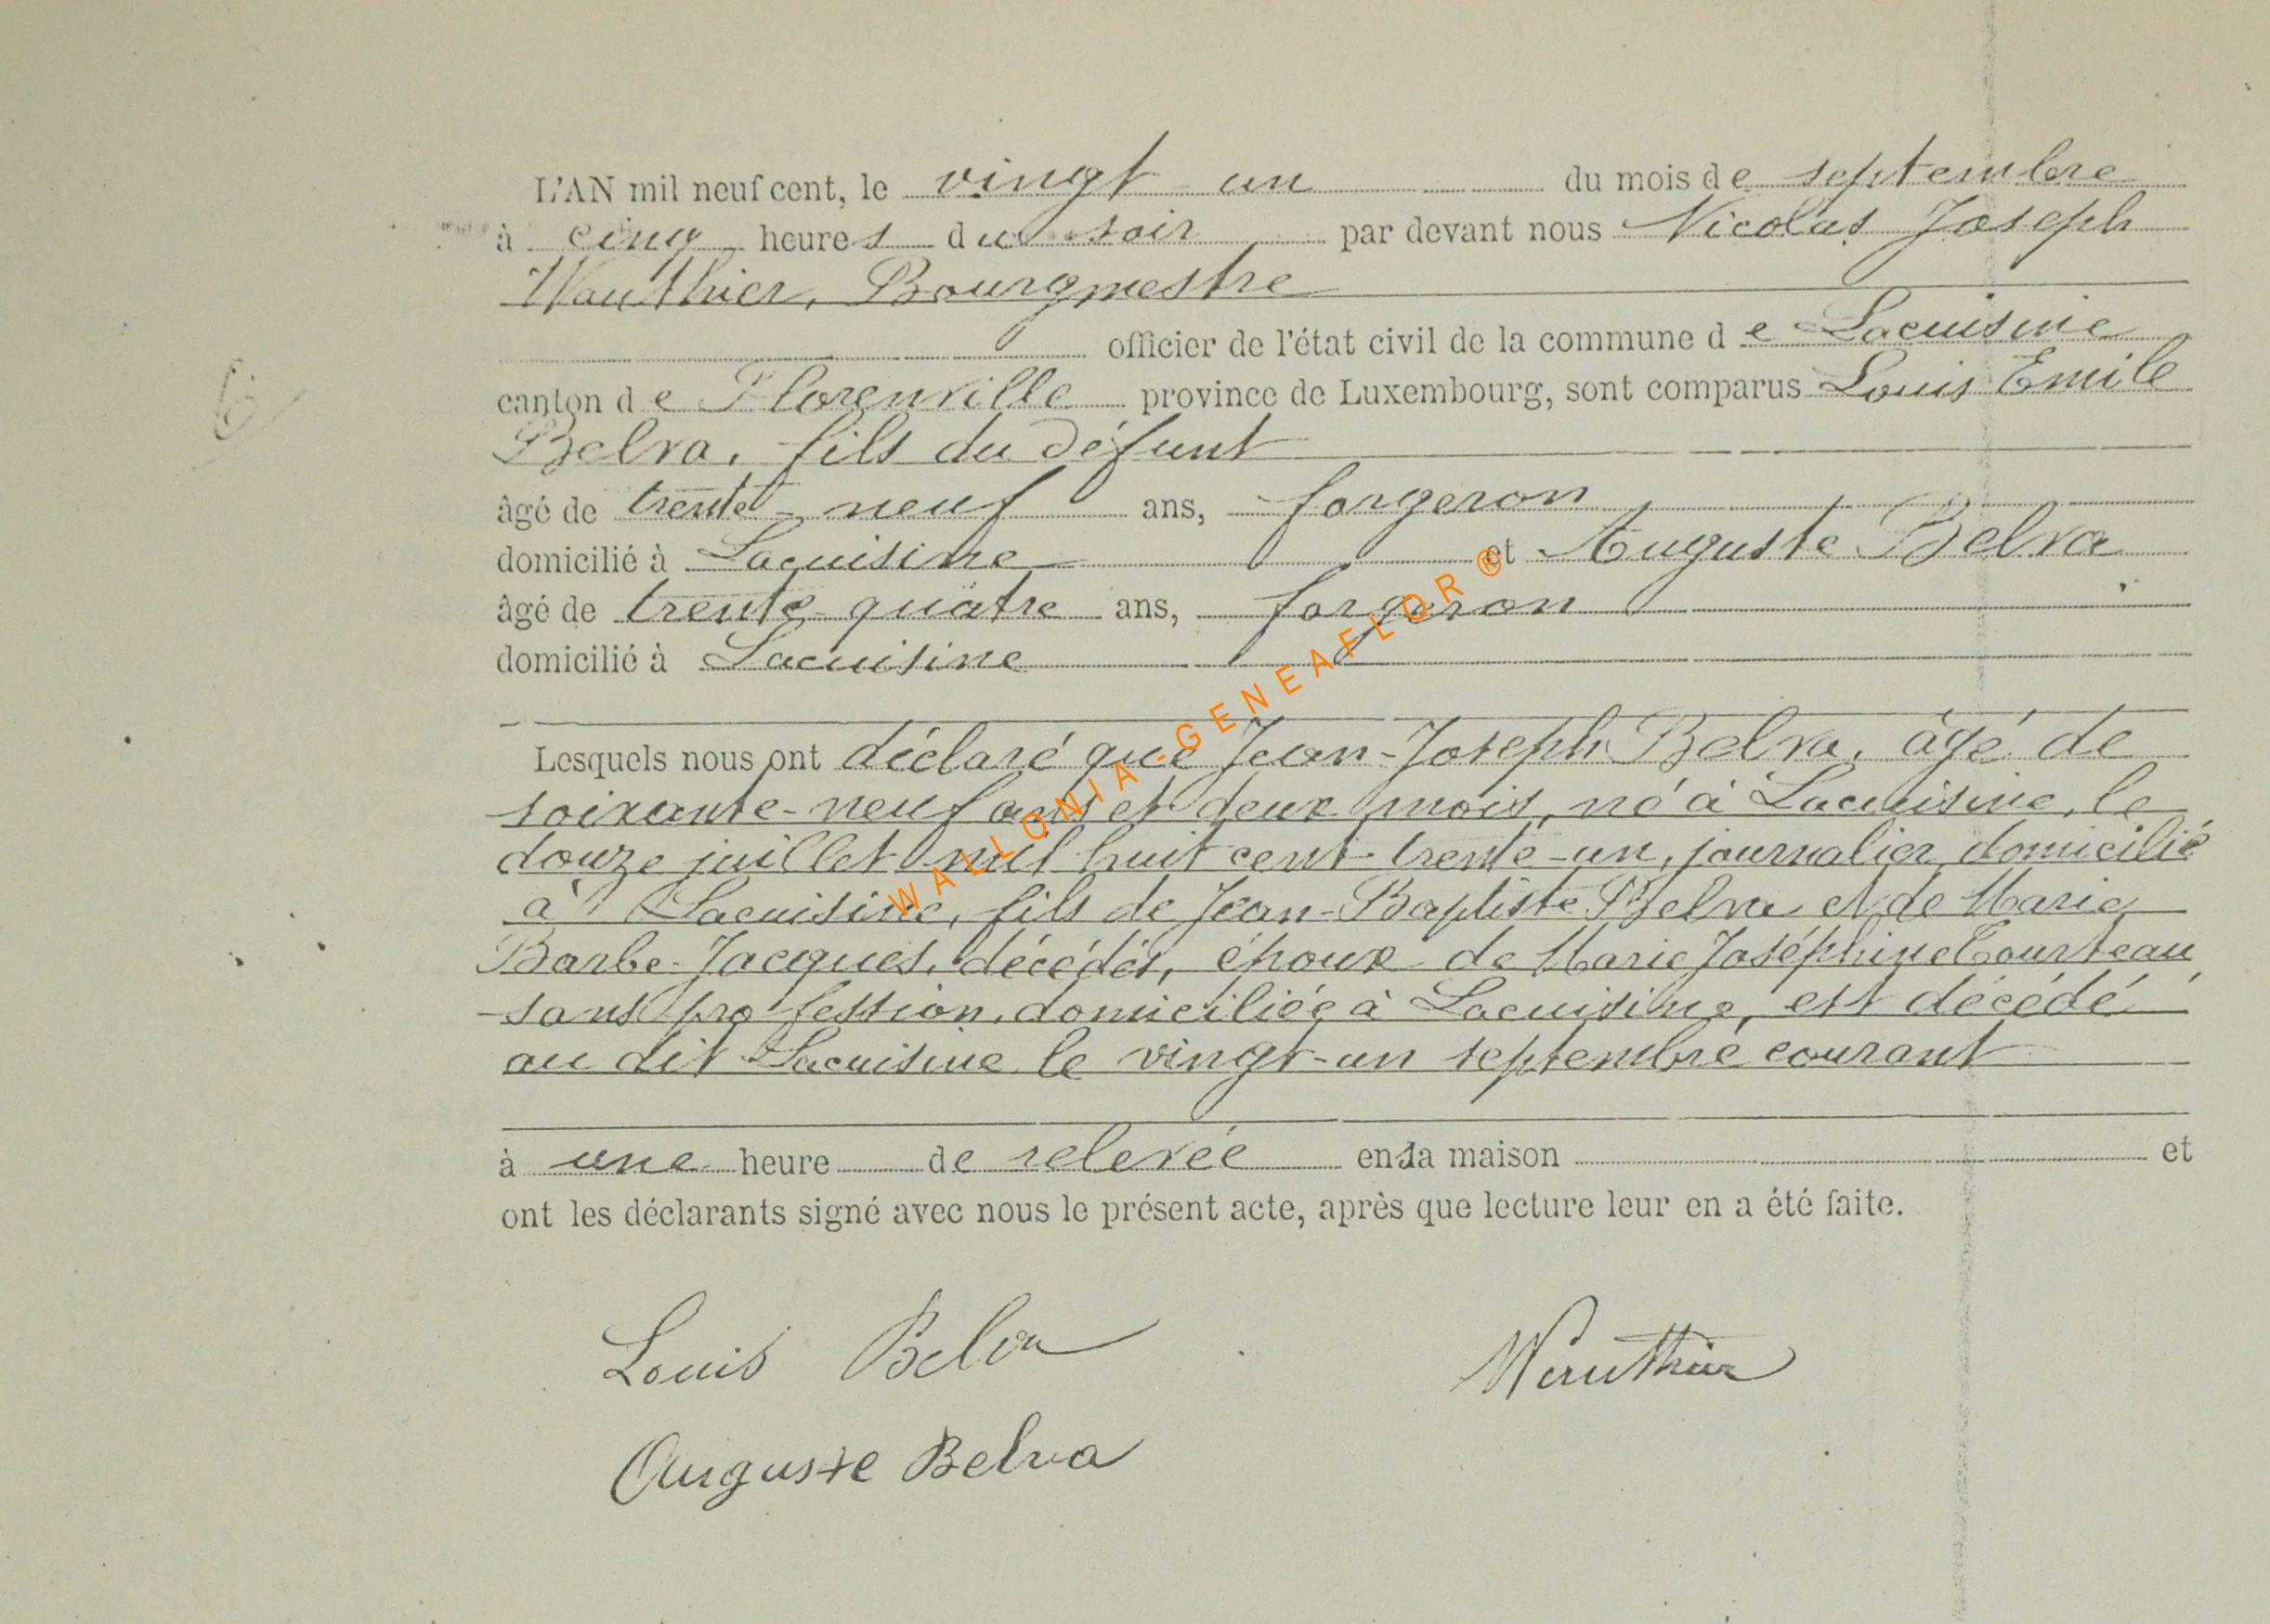 L'AN mil neuf cent, le vingt un du mois de septembre
à cinq heures du soir par devant nous Nicolas Joseph
Wauthier, Bourgmestre
officier de l'état civil de la commune de Lacuisine
canton de Florenville province de Luxembourg, sont comparus Louis Emile
Belva, fils du défunt
6
âgé de trente-neuf ans, forgeron
domicilié à Lacuisine et Auguste Belva
âgé de trente-quatre ans, forgeron
domicilié à Lacuisine
Lesquels nous ont déclaré que Jean-Joseph Belva, âgé de
soixante-neuf ans et deux mois, né à Lacuisine, le
douze juillet mil huit cent trente-un, journalier, domicilié
à Lacuisine, fils de Jean-Baptiste Belva et de Marie
Barbe Jacques, décédés, époux de Marie Joséphine Courteau
sans profession, domiciliée à Lacuisine, est décédé
au dit Lacuisine le vingt-un septembre courant
à une heure de relevée en sa maison et
ont les déclarants signé avec nous le présent acte, après que lecture leur en a été faite.
Louis Belva
Wauthier
Auguste Belva
WALLONIA-GENEAFLOR®